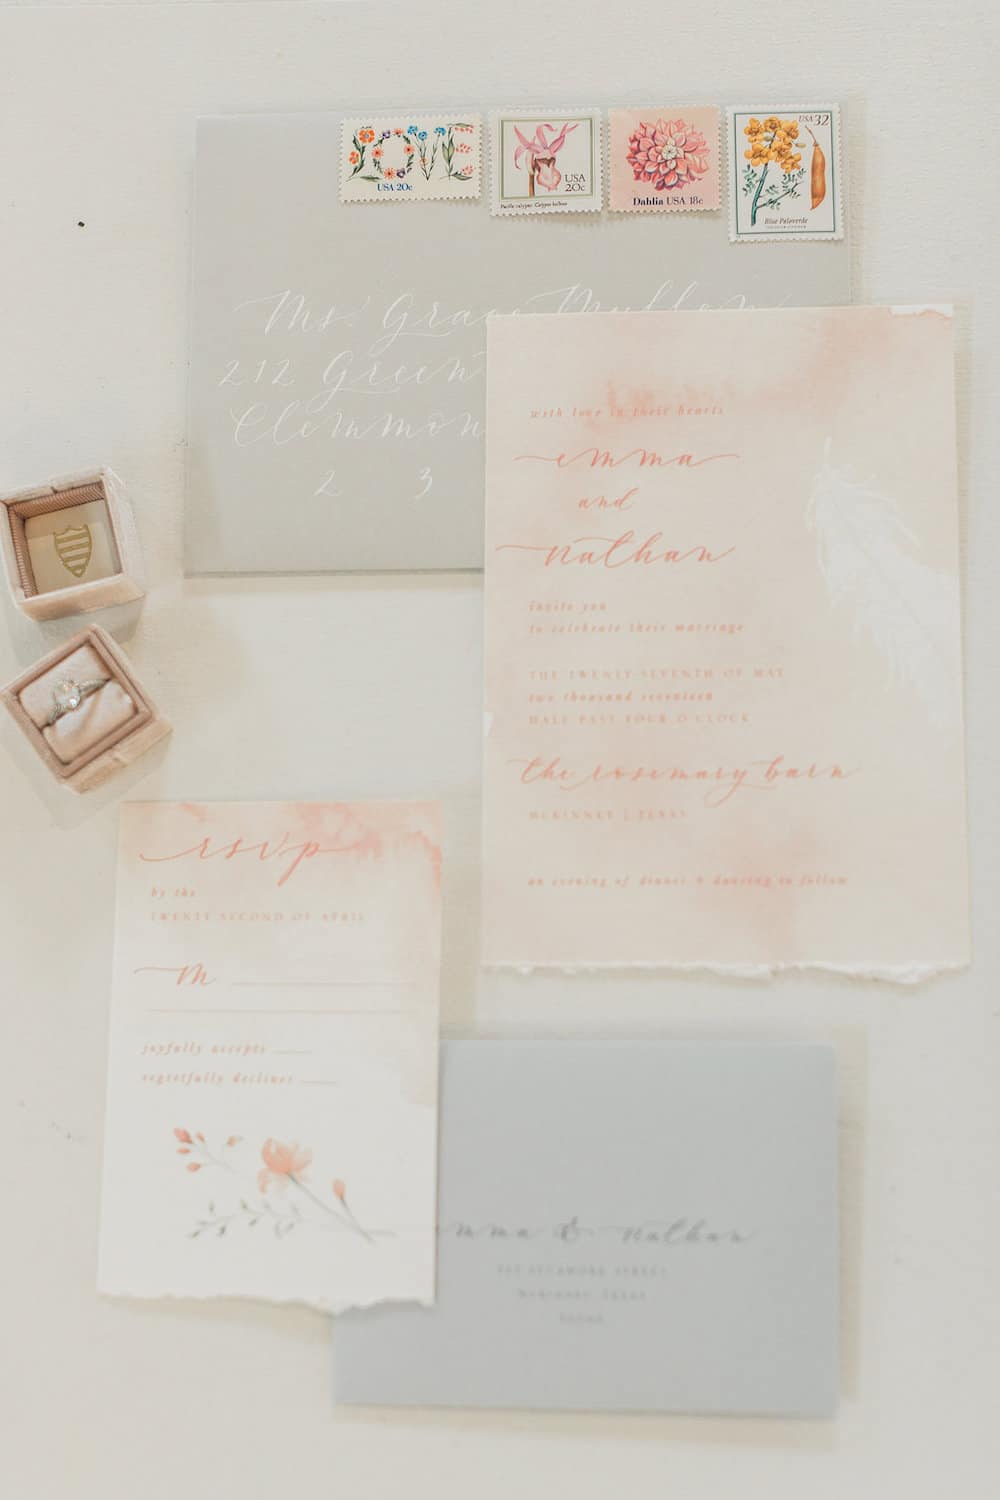 LOVE
USA 20c
USA
20c
Pacific calypso: Calypso bulbosa
Dahlia USA 18c
USA 32
Blue Paloverde
Ms. Grace
212 Green
Clemmon
2 3
with love in their hearts
emma
and
nathan
invite you
to celebrate their marriage
THE TWENTY SEVENTH OF MAY
two thousand seventeen
HALF PAST FOUR O'CLOCK
the rosemary barn
MCKINNEY | TEXAS
an evening of dinner + dancing to follow
rsvp
by the
TWENTY SECOND OF APRIL
M
joyfully accepts
regretfully declines
mma & nathan
SYCAMORE STREET
MCKINNEY, TEXAS